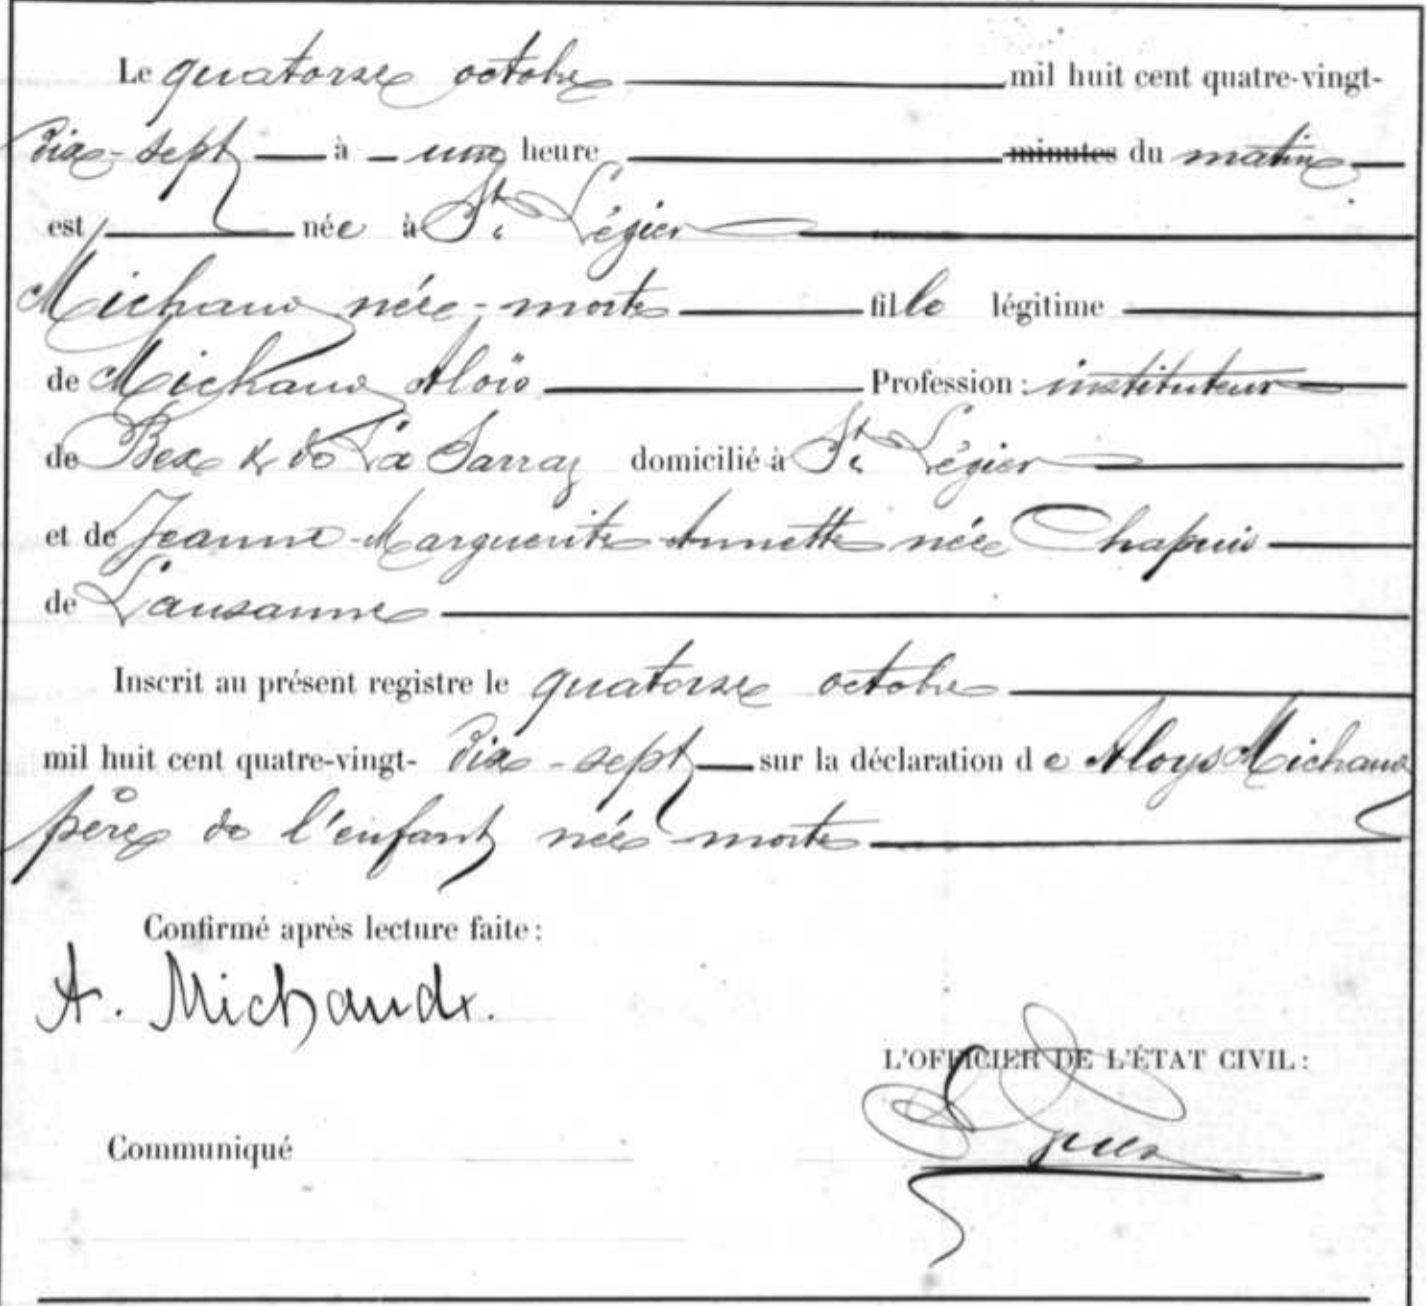 Le quatorze octobre mil huit cent quatre-vingt-
dix-sept à une heure minutes du matin
est née à St. Légier
Michaud née-morte fille légitime
de Michaud Aloïs Profession : instituteur
de Bex & de La Sarraz domicilié à St. Légier
et de Jeanne-Marguerite-Annette née Chapuis
de Lausanne
Inscrit au présent registre le quatorze octobre
mil huit cent quatre-vingt- dix-sept sur la déclaration de Aloys Michaud
père de l'enfant née-morte
Confirmé après lecture faite :
A. Michaud.
L'OFFICIER DE L'ÉTAT CIVIL :
Communiqué